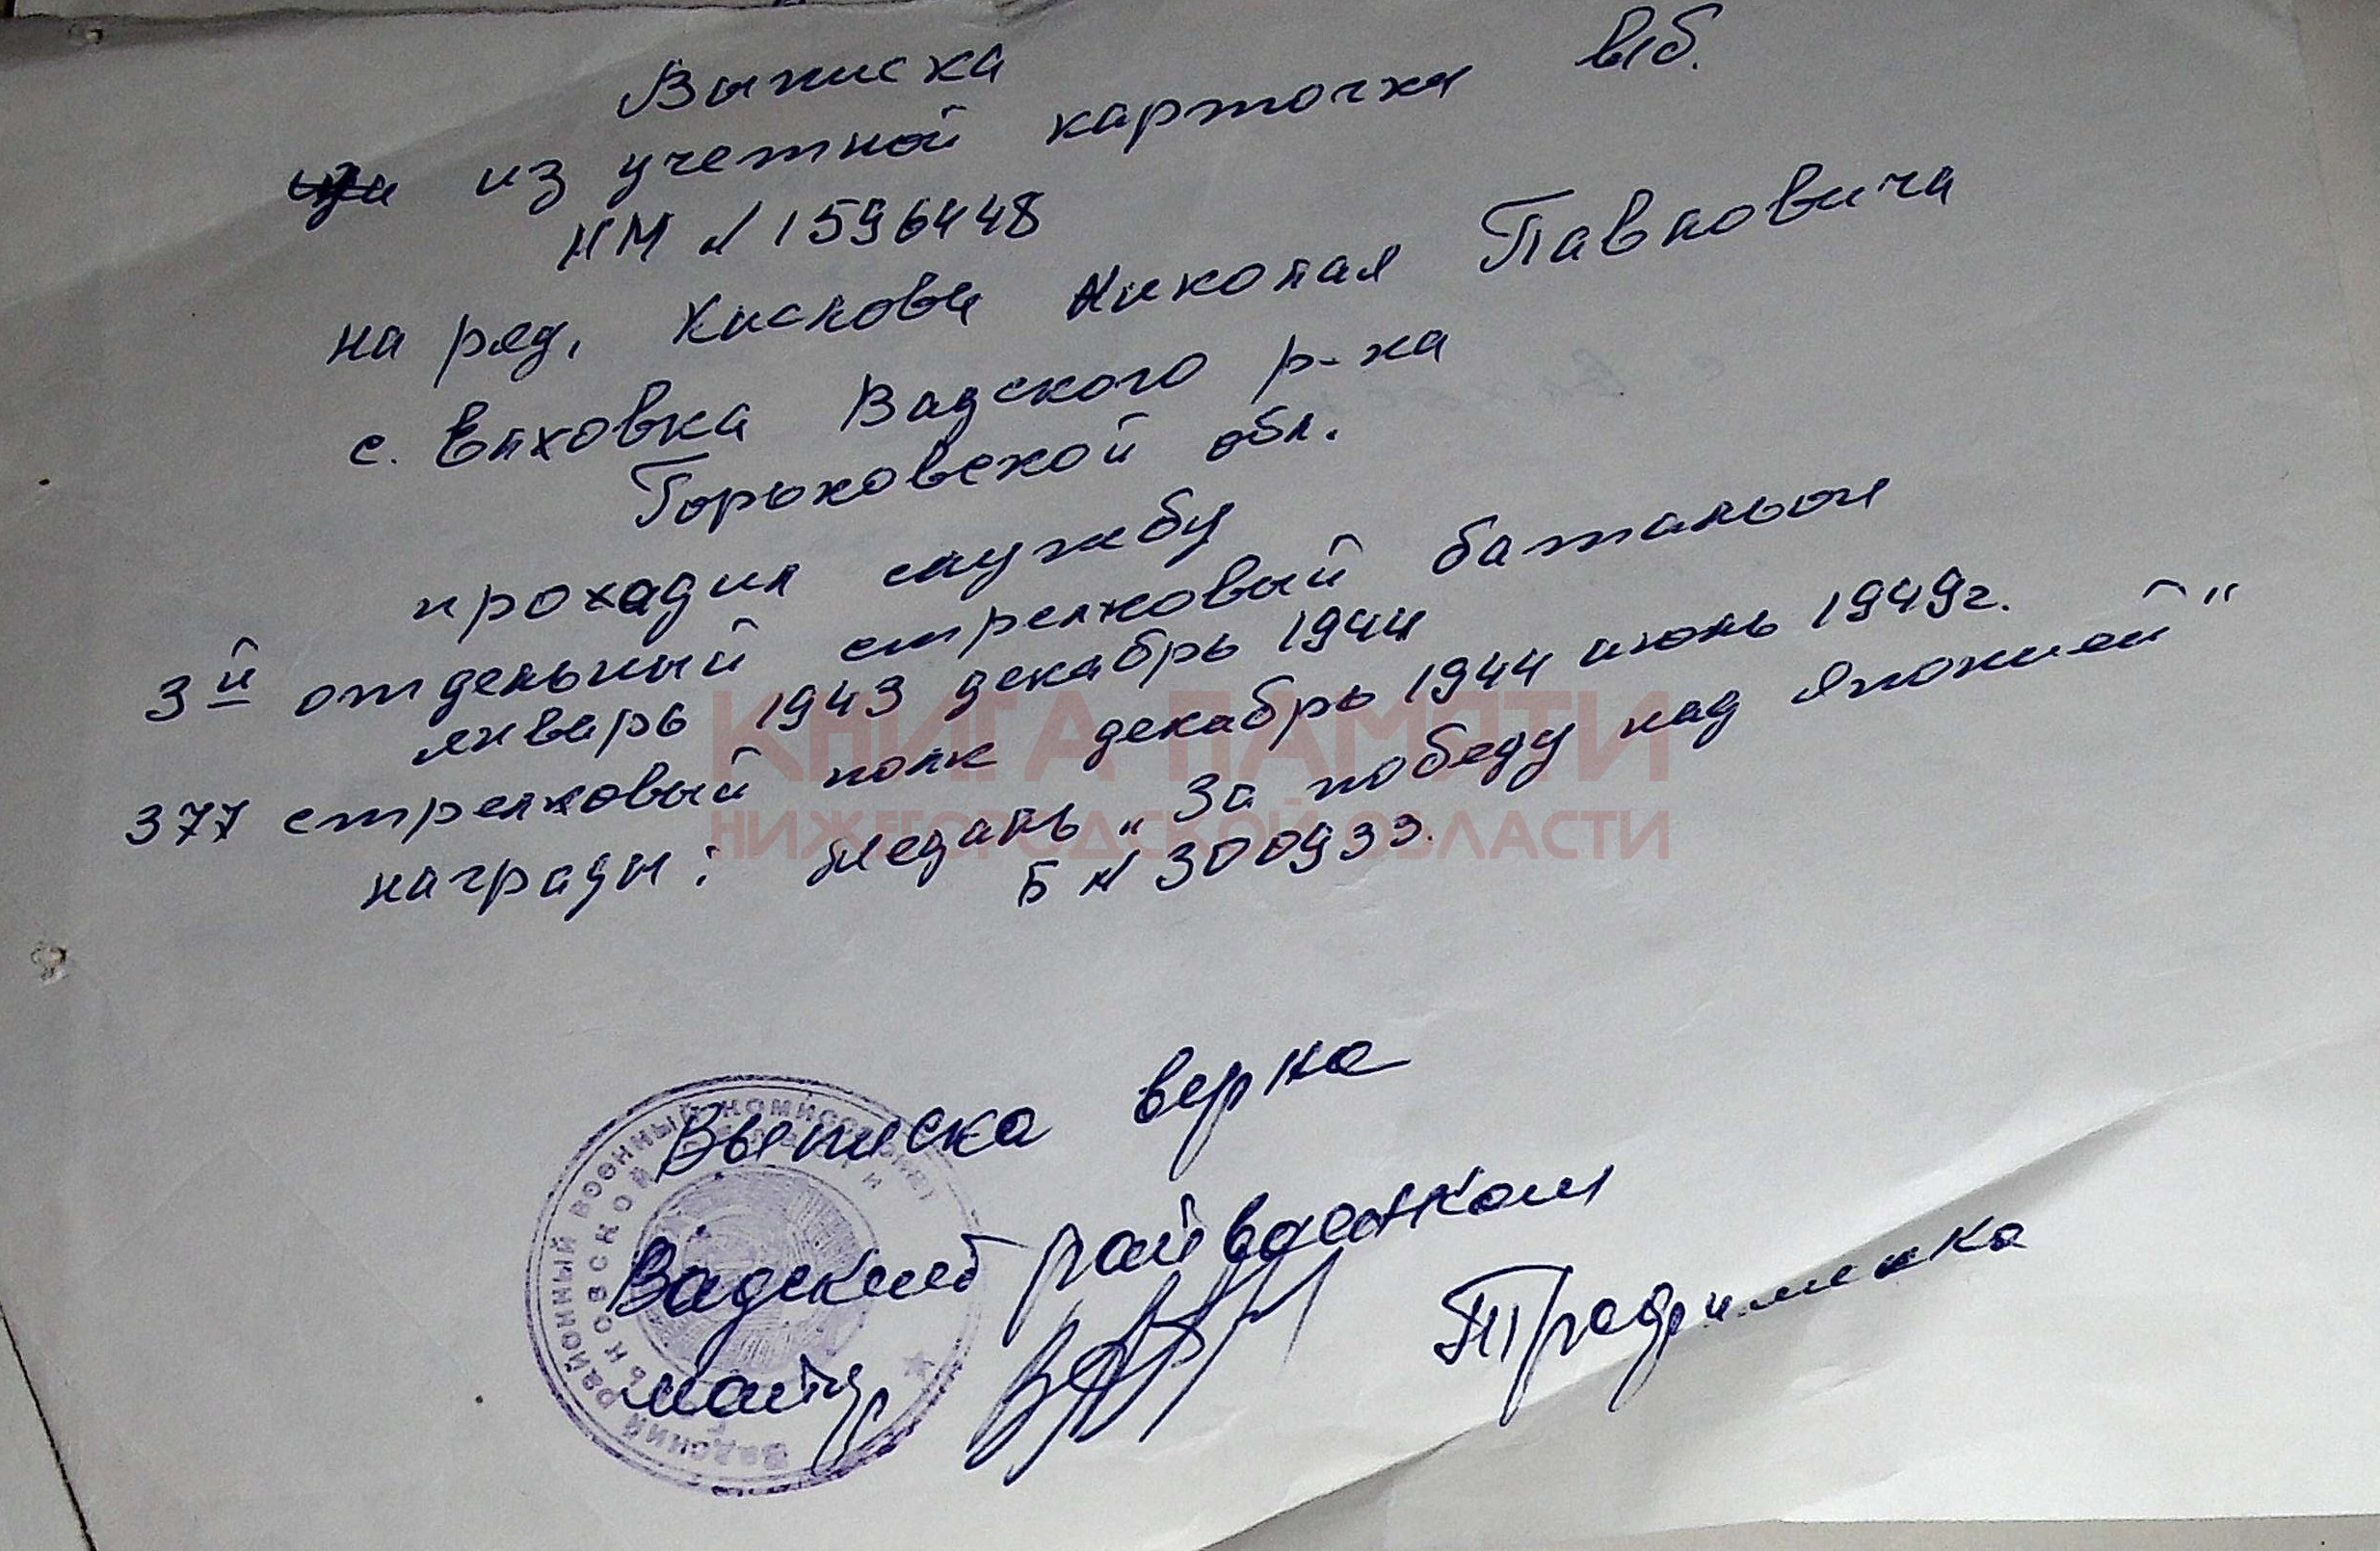 Выписка
из учетной карточки в/б.
НМ № 1596448
на ряд. Кислова Николая Павловича
с. Елховка Вадского р-на
Горьковской обл.
проходил службу
3й отдельный стрелковый батальон
январь 1943 декабрь 1944
377 стрелковый полк декабрь 1944 июнь 1949г.
награды: медаль „За победу над Японией"
Б № 300933.
КНИГА ПАМЯТИ
НИЖЕГОРОДСКОЙ ОБЛАСТИ
Выписка верна
Вадский райвоенком
майор Трофименко
Вадский районный военный комиссариат
Горьковской области